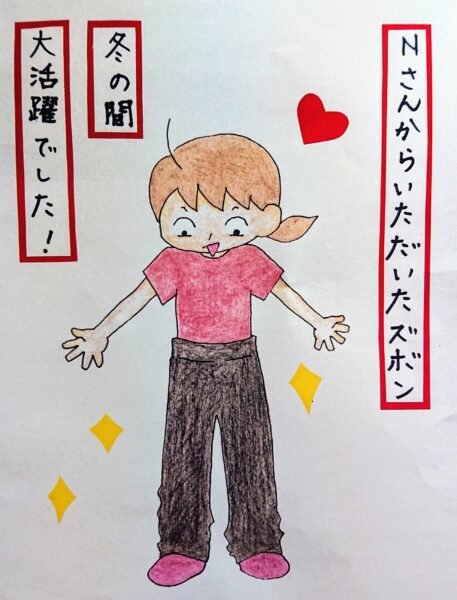 Nさんからいただいたズボン
冬の間
大活躍でした！